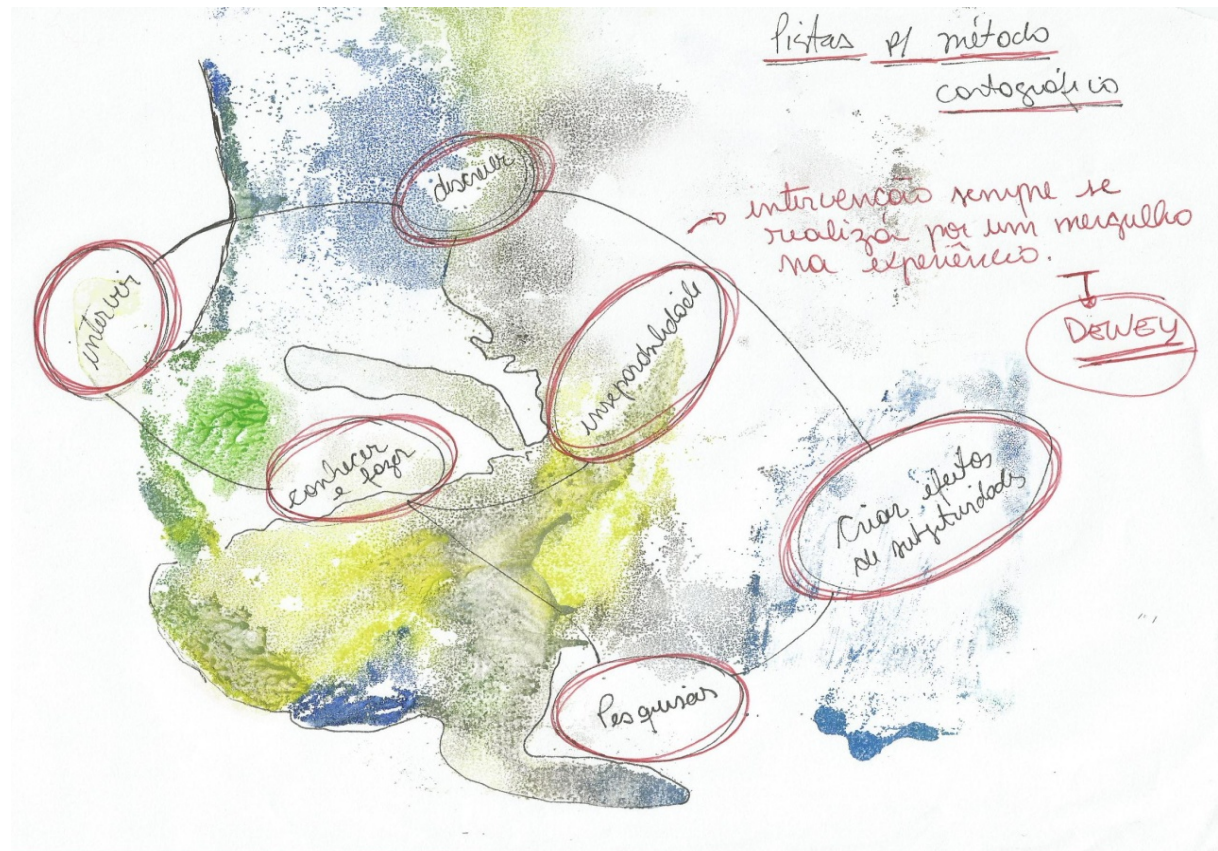 Pistas p/ método
cartográfico
descrever
intervenção sempre se
realiza por um mergulho
na experiência.
DEWEY
intervir
inseparabilidade
conhecer
e fazer
Criar efeitos
de subjetividades
Pesquisas